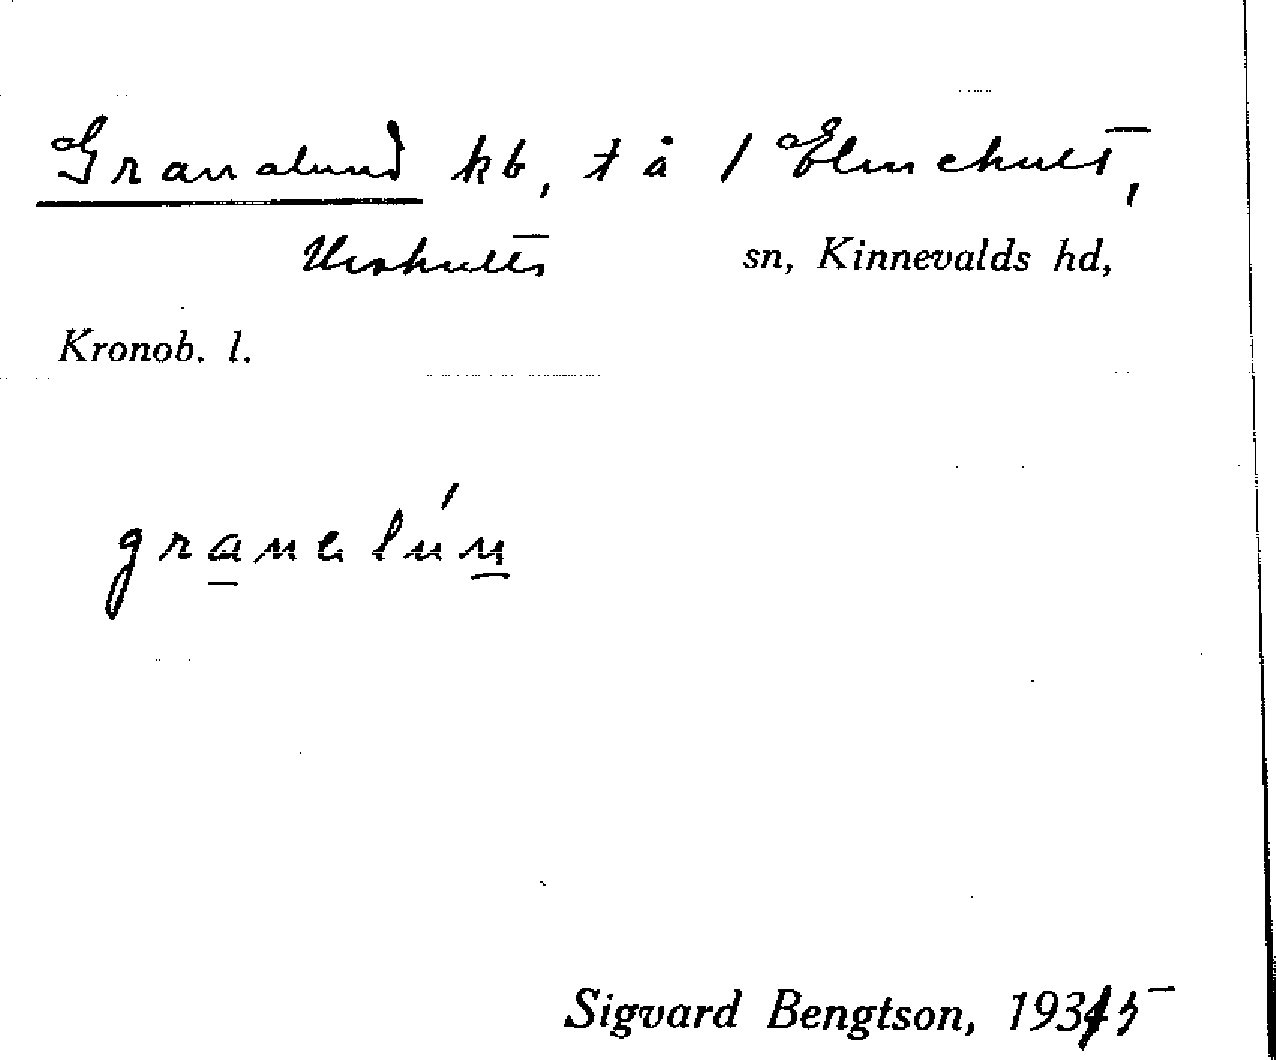 Granalund kb, t å 1 Elmehult,
Urshults sn, Kinnevalds hd,
Kronob. l.
granalún
Sigvard Bengtson, 1935